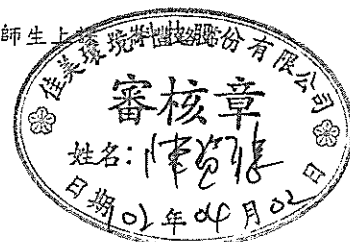 師生上
佳美環境科技股份有限公司
審核章
姓名:陳
日期102年04月02日